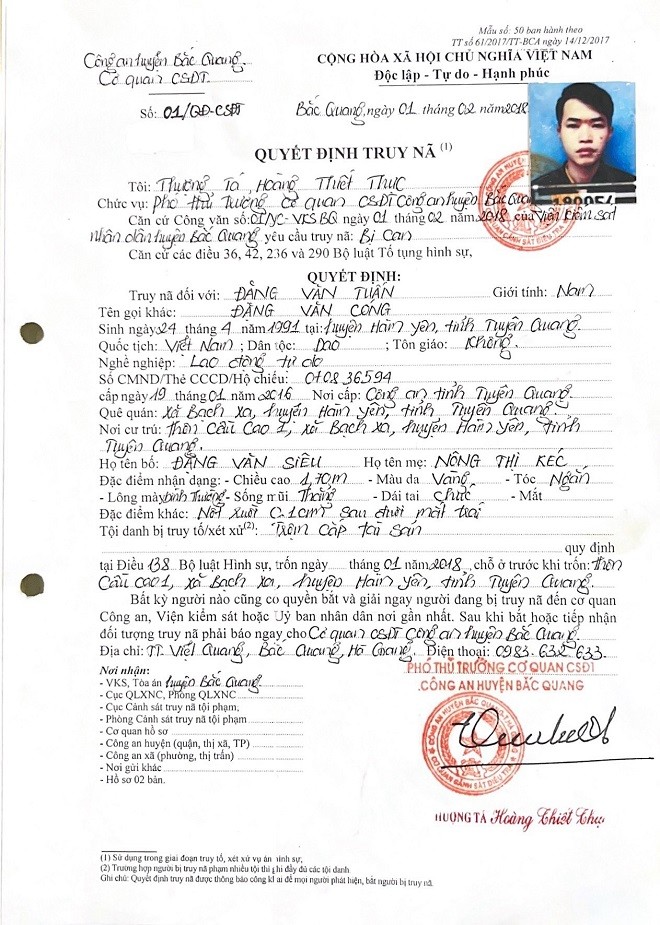 Mẫu số: 50 ban hành theo
TT số 61/2017/TT-BCA ngày 14/12/2017
Công an huyện Bắc Quang
Cơ quan CSĐT
CỘNG HÒA XÃ HỘI CHỦ NGHĨA VIỆT NAM
Độc lập - Tự do - Hạnh phúc
Số: 01/QĐ-CSĐT
Bắc Quang, ngày 01 tháng 02 năm 2018
QUYẾT ĐỊNH TRUY NÃ (1)
Tôi: Thượng Tá, Hoàng Thiết Thực
Chức vụ: Phó Thủ Trưởng Cơ quan CSĐT Công an huyện Bắc Quang
Căn cứ Công văn số: 01/YC-VKSBQ ngày 01 tháng 02 năm 2018 của Viện kiểm sát
nhân dân huyện Bắc Quang yêu cầu truy nã: Bị Can
Căn cứ các điều 36, 42, 236 và 290 Bộ luật Tố tụng hình sự,
QUYẾT ĐỊNH:
Truy nã đối với: ĐẶNG VĂN TUẤN Giới tính: Nam
Tên gọi khác: ĐẶNG VĂN CÔNG
Sinh ngày 24 tháng 4 năm 1991 tại: huyện Hàm Yên, tỉnh Tuyên Quang.
Quốc tịch: Việt Nam; Dân tộc: Dao; Tôn giáo: Không.
Nghề nghiệp: Lao động tự do
Số CMND/Thẻ CCCD/Hộ chiếu: 070836594
cấp ngày 19 tháng 01 năm 2016 Nơi cấp: Công an tỉnh Tuyên Quang.
Quê quán: Xã Bạch Xa, huyện Hàm Yên, tỉnh Tuyên Quang
Nơi cư trú: thôn Cầu Cao 1, xã Bạch Xa, huyện Hàm Yên, tỉnh
Tuyên Quang.
Họ tên bố: ĐẶNG VĂN SIÊU Họ tên mẹ: NÔNG THỊ KÉC
Đặc điểm nhận dạng: - Chiều cao 1,70m - Màu da Vàng - Tóc Ngắn
- Lông mày bình thường - Sống mũi Thẳng - Dái tai chúc - Mắt
Đặc điểm khác: Nốt ruồi C.1cm sau đuôi mắt trái
Tội danh bị truy tố/xét xử(2): Trộm Cắp tài sản
quy định
tại Điều 138 Bộ luật Hình sự, trốn ngày tháng 01 năm 2018, chỗ ở trước khi trốn: thôn
Cầu Cao 1, xã Bạch Xa, huyện Hàm Yên, tỉnh Tuyên Quang.
Bất kỳ người nào cũng có quyền bắt và giải ngay người đang bị truy nã đến cơ quan
Công an, Viện kiểm sát hoặc Uỷ ban nhân dân nơi gần nhất. Sau khi bắt hoặc tiếp nhận
đối tượng truy nã phải báo ngay cho Cơ quan CSĐT Công an huyện Bắc Quang.
Địa chỉ: TT. Việt Quang, Bắc Quang, Hà Giang. Điện thoại: 0983.632.633.
Nơi nhận:
- VKS, Tòa án huyện Bắc Quang
- Cục QLXNC, Phòng QLXNC
- Cục Cảnh sát truy nã tội phạm,
- Phòng Cảnh sát truy nã tội phạm
- Cơ quan hồ sơ
- Công an huyện (quận, thị xã, TP)
- Công an xã (phường, thị trấn)
- Nơi gửi khác
- Hồ sơ 02 bản.
PHÓ THỦ TRƯỞNG CƠ QUAN CSĐT
CÔNG AN HUYỆN BẮC QUANG
HƯỢNG TÁ Hoàng Thiết Thực
(1) Sử dụng trong giai đoạn truy tố, xét xử vụ án hình sự;
(2) Trường hợp người bị truy nã phạm nhiều tội thì ghi đầy đủ các tội danh
Ghi chú: Quyết định truy nã được thông báo công khai để mọi người phát hiện, bắt người bị truy nã.